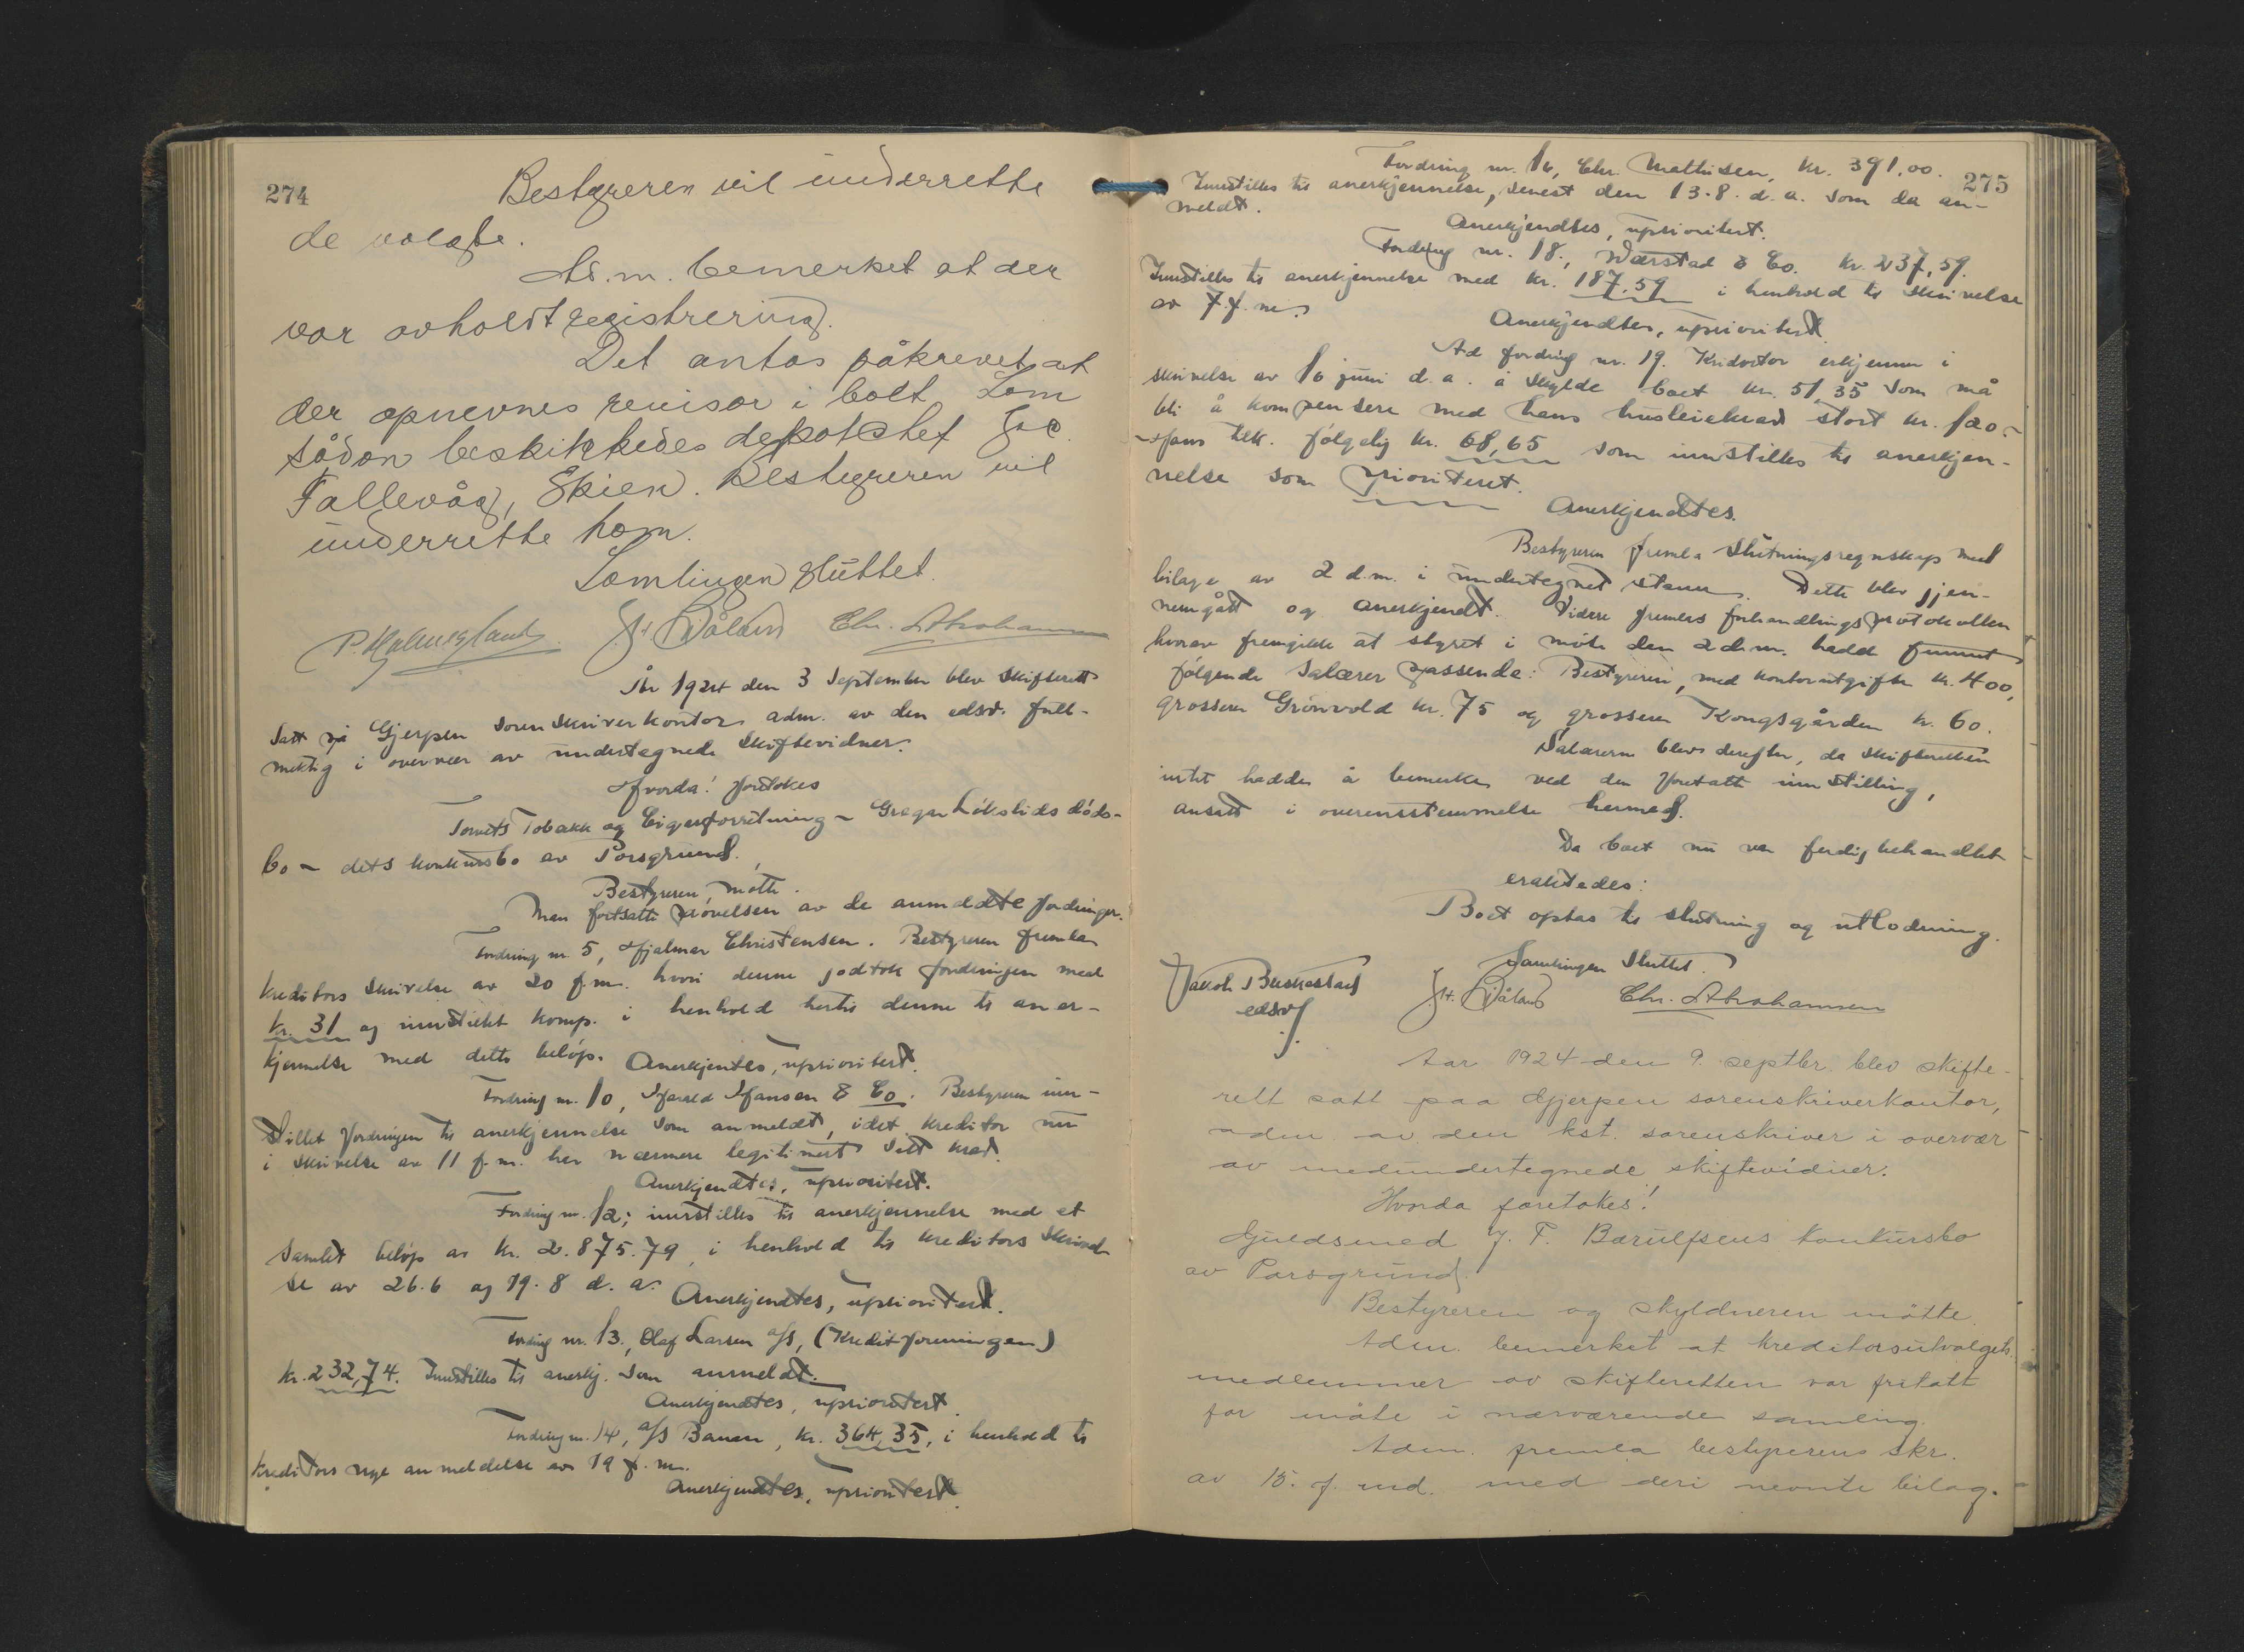 274
Bestyreren vil underrette
de valgte.
Ad.m. bemerket at der
var avholdt registrering.
Det antas påkrevet at
der opnevnes revisor i boet. Som
sådan beskikkedes
Fallevåg, Skien. Bestyreren vil
underrette ham.
Samlingen sluttet.
Chr. Abrahamsen
År 1924 den 3 September blev skifterett
satt på Gjerpen sorenskriverkontor, adm. av den edsv. full-
mektig i overvær av undertegnede skiftevidner.
Hvorda! foretokes
Torvets Tobakk og Cigarforretning - Gregar Lökslids döds-
bo - dets konkursbo av Porsgrund.
Bestyreren mötte.
Man fortsatte prövelsen av de anmeldte fordringer.
Fordring nr 5, Hjalmar Christensen. Bestyreren fremla
kreditors skrivelse av 20 f.m. hvori denne godtok fordringen med
kr. 31 og innstillet komp. i henhold hertil denne til aner-
kjennelse med dette belöp. Anerkjentes, uprioritert.
Fordring nr. 10, Harald Hansen & Co. Bestyreren inn-
stillet fordringen til anerkjennelse som anmeldt, idet kreditor nu
i skrivelse av 11 f.m. har nærmere legitimert sitt krav.
Anerkjendtes, uprioritert.
Fordring nr. 12; innstilles til anerkjennelse med et
samlet belöp av kr. 2.875.79, i henhold til kreditors skrivel-
se av 26.6 og 19.8 d.a. Anerkjendtes, uprioritert.
Fordring nr. 13, Olaf Larsen a/s, (Kreditforeningen)
kr. 232,74. Innstilles til anerkj. som anmeldt.
Anerkjendtes, uprioritert.
Fordring nr. 14, a/s Banan, kr. 364,35, i henhold til
kreditors nye anmeldelse av 19 f.m.
Anerkjendtes, uprioritert.
275
Fordring nr. 16, Chr. Mathisen, kr. 391,00.
Innstilles til anerkjennelse, senest den 13.8. d.a. som da an-
meldt.
Anerkjendtes, uprioritert.
Fordring nr. 18, Wærstad & Co. kr. 237,59.
Innstilles til anerkjennelse med kr. 187,59 i henhold til skrivelse
av 7.f.m.
Anerkjendtes, uprioritert.
Ad fordring nr. 19. Kreditor erkjenner i
skrivelse av 16 juni d.a. å skylde boet kr. 51,35 som må
bli å kompensere med hans husleiekrav stort kr. 120.-
Hans tilk. følgelig kr. 68,65 som innstilles til anerkjen-
nelse som prioritert.
Anerkjendtes.
Bestyreren fremla slutningsregnskap med
bilage av 2 d.m. i undertegnet stand. Dette blev gjen-
nemgått og anerkjendt. Videre fremlas forhandlingsprotokollen
hvorav fremgikk at styret i möte den 2 d.m. hadde funnet
følgende salærer passende: Bestyreren, med kontorutgifter kr. 400,
grosserer Grönvold kr. 75 og grosserer Kongsgården kr. 60.
Salærerne blev derefter, da skifteretten
intet hadde å bemerke ved den foretatte innstilling,
ansatt i overensstemmelse hermed.
Da boet nu var ferdigbehandlet
eraktedes:
Boet optas til slutning og utlodning.
Samlingen sluttet.
edsvf.
Chr. Abrahamsen
Aar 1924 den 9. septbr. blev skifte-
rett satt paa Gjerpen sorenskriverkontor,
adm. av den kst. sorenskriver i overvær
av medundertegnede skiftevidner:
Hvorda foretokes!
Guldsmed J. F. Bærulfsens konkursbo
av Porsgrund.
Bestyreren og skyldneren mötte.
Adm. bemerket at kreditorsutvalgets
medlemmer av skifteretten var fritatt
for möte i nærværende samling.
Adm. fremla bestyrerens skr.
av 15. f. md. med deri nevnte bilag.